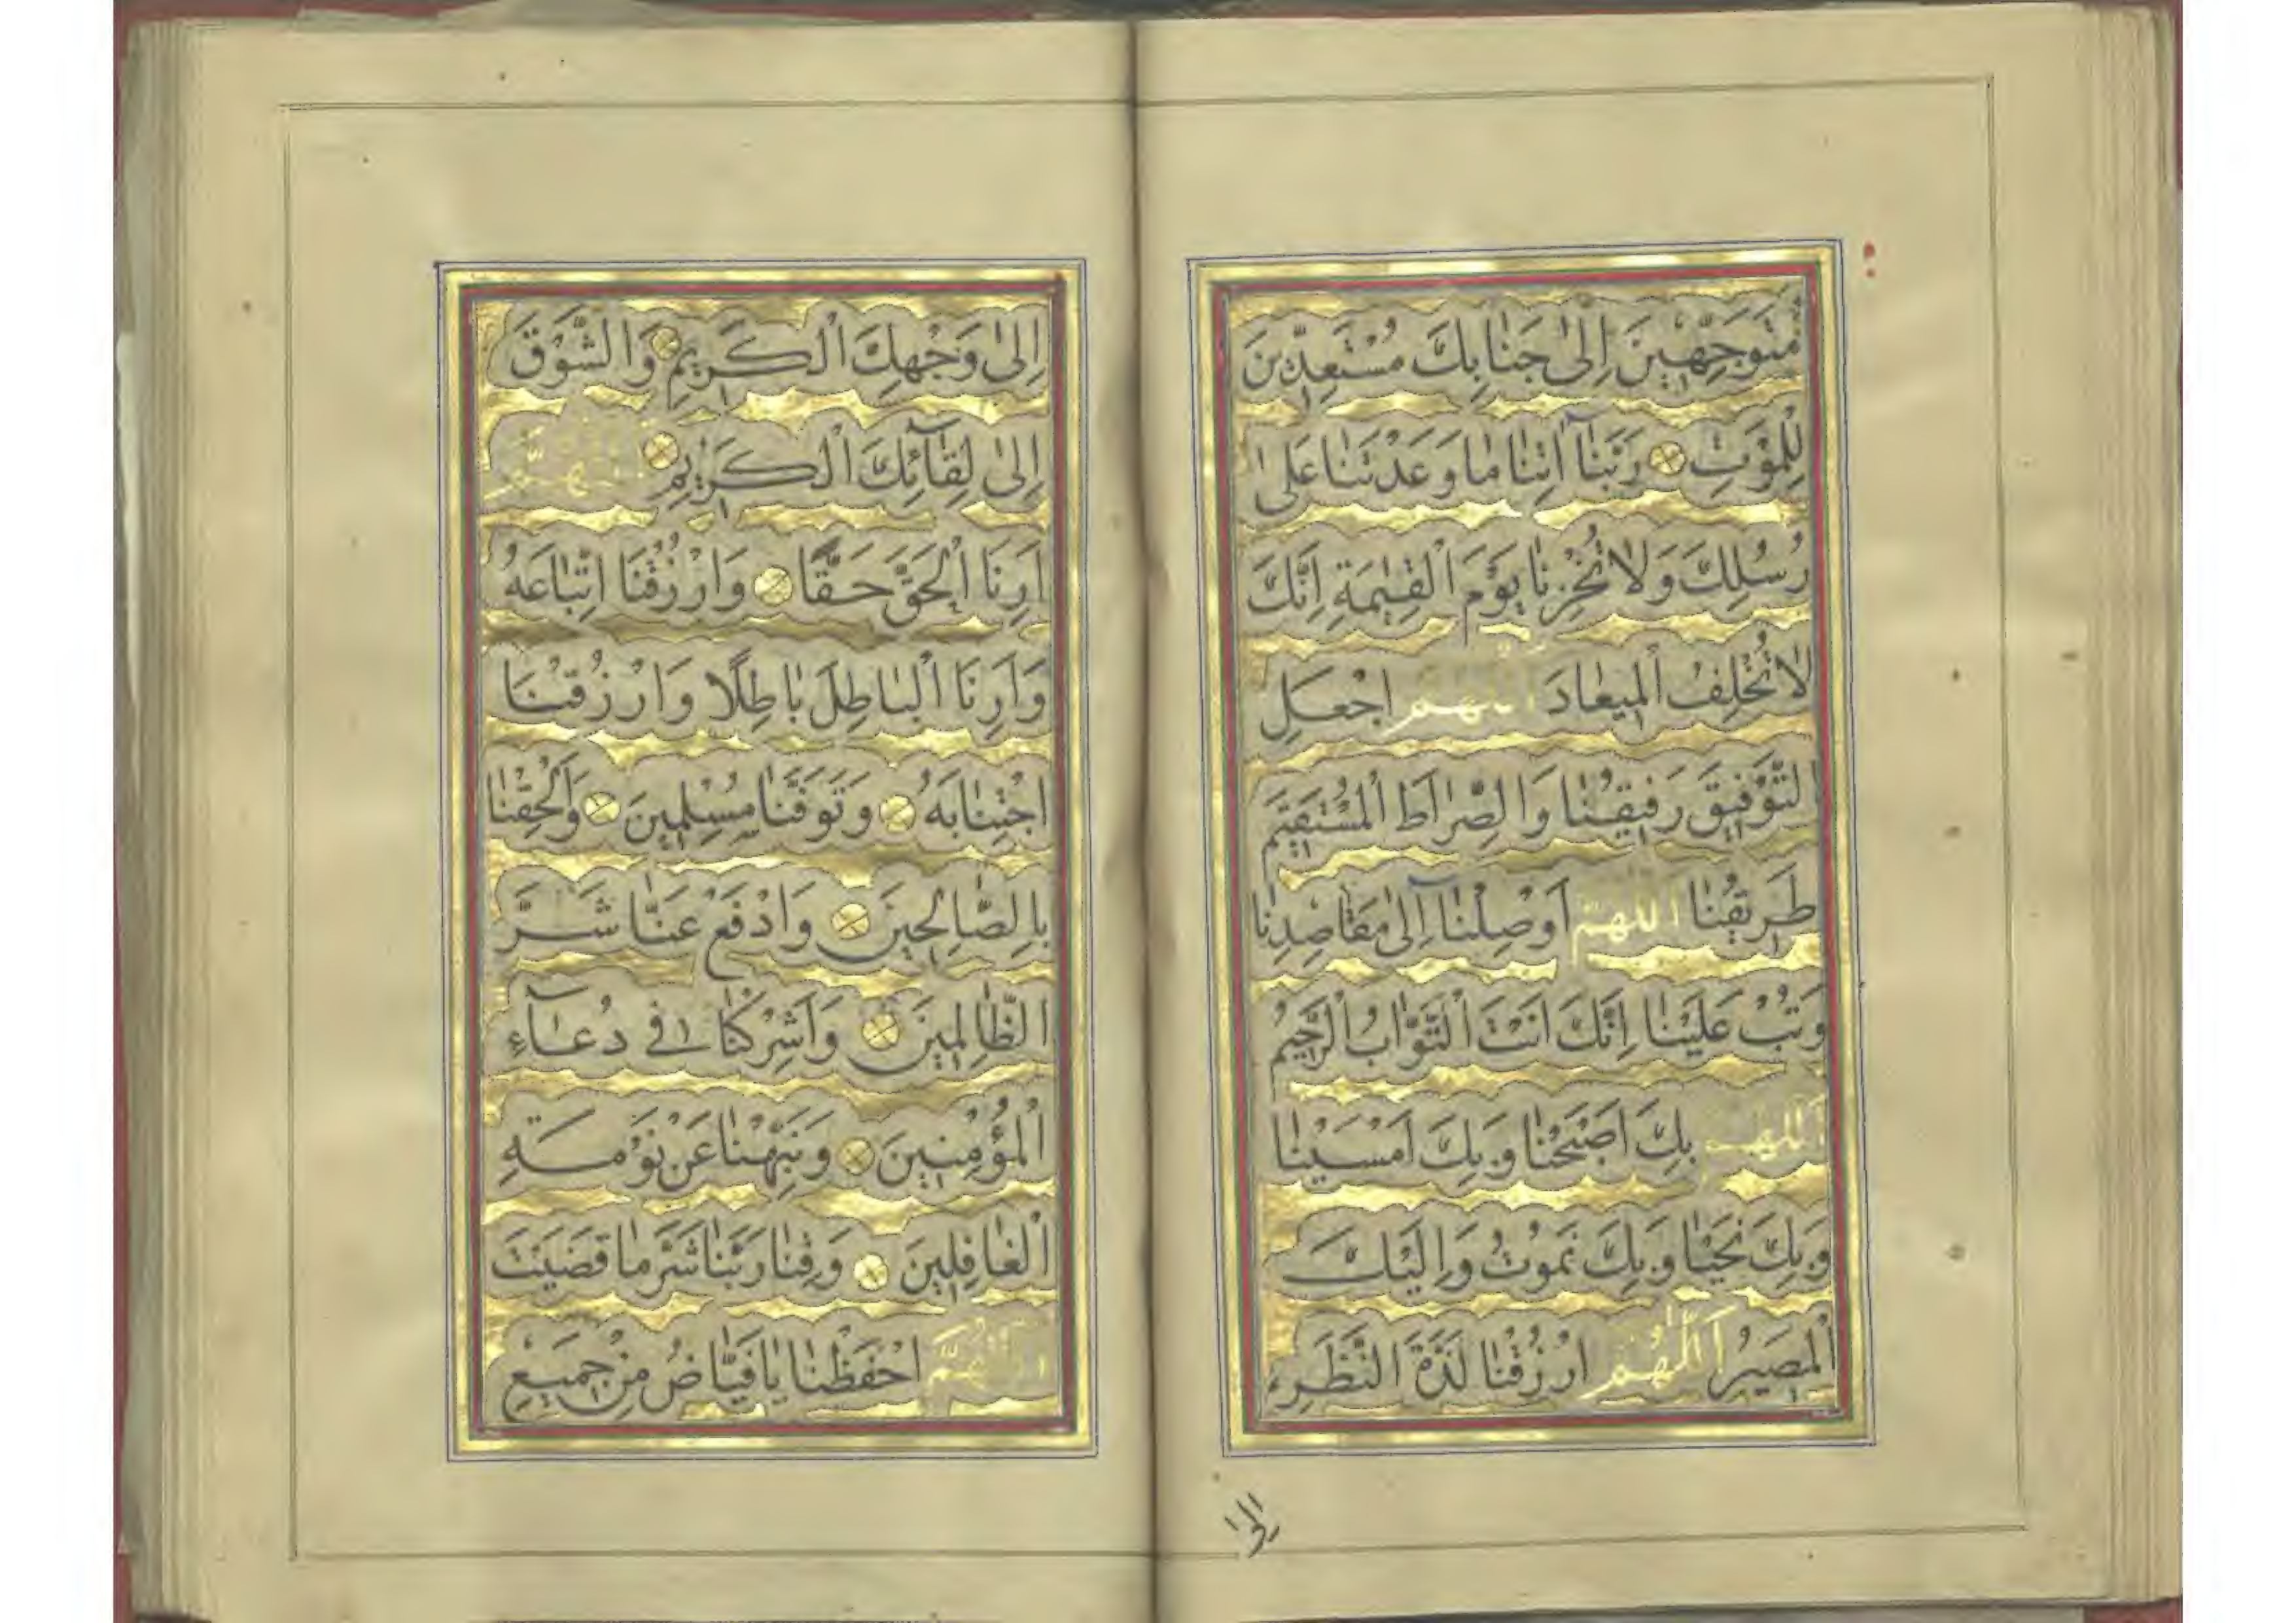 مُتَوَجِّهِينَ اِلٰى جَنَابِكَ مُسْتَعِدِّينَ
لِلْمَوْتِ رَبَّنَا آتِنَا مَا وَعَدْتَنَا عَلٰى
رُسُلِكَ وَلَا تُخْزِنَا يَوْمَ الْقِيٰمَةِ اِنَّكَ
لَا تُخْلِفُ الْمِيعَادَ اَللّٰهُمَّ اجْعَلِ
التَّوْفِيقَ رَفِيقَنَا وَالصِّرَاطَ الْمُسْتَقِيمَ
طَرِيقَنَا اَللّٰهُمَّ اَوْصِلْنَا اِلٰى مَقَاصِدِنَا
وَتُبْ عَلَيْنَا اِنَّكَ اَنْتَ التَّوَّابُ الرَّحِيمُ
اَللّٰهُمَّ بِكَ اَصْبَحْنَا وَبِكَ اَمْسَيْنَا
وَبِكَ نَحْيَا وَبِكَ نَمُوتُ وَاِلَيْكَ
الْمَصِيرُ اَللّٰهُمَّ ارْزُقْنَا لَذَّةَ النَّظَرِ
الى
اِلٰى وَجْهِكَ الْكَرِيمِ وَالشَّوْقَ
اِلٰى لِقَآئِكَ الْكَرِيمِ اَللّٰهُمَّ
اَرِنَا الْحَقَّ حَقًّا وَارْزُقْنَا اتِّبَاعَهُ
وَاَرِنَا الْبَاطِلَ بَاطِلًا وَارْزُقْنَا
اجْتِنَابَهُ وَتَوَفَّنَا مُسْلِمِينَ وَاَلْحِقْنَا
بِالصَّالِحِينَ وَادْفَعْ عَنَّا شَرَّ
الظَّالِمِينَ وَاَشْرِكْنَا فِي دُعَآءِ
الْمُؤْمِنِينَ وَنَبِّهْنَا عَنْ نَوْمَةِ
الْغَافِلِينَ وَقِنَا رَبَّنَا شَرَّ مَا قَضَيْتَ
اَللّٰهُمَّ احْفَظْنَا يَا فَيَّاضُ مِنْ جَمِيعِ